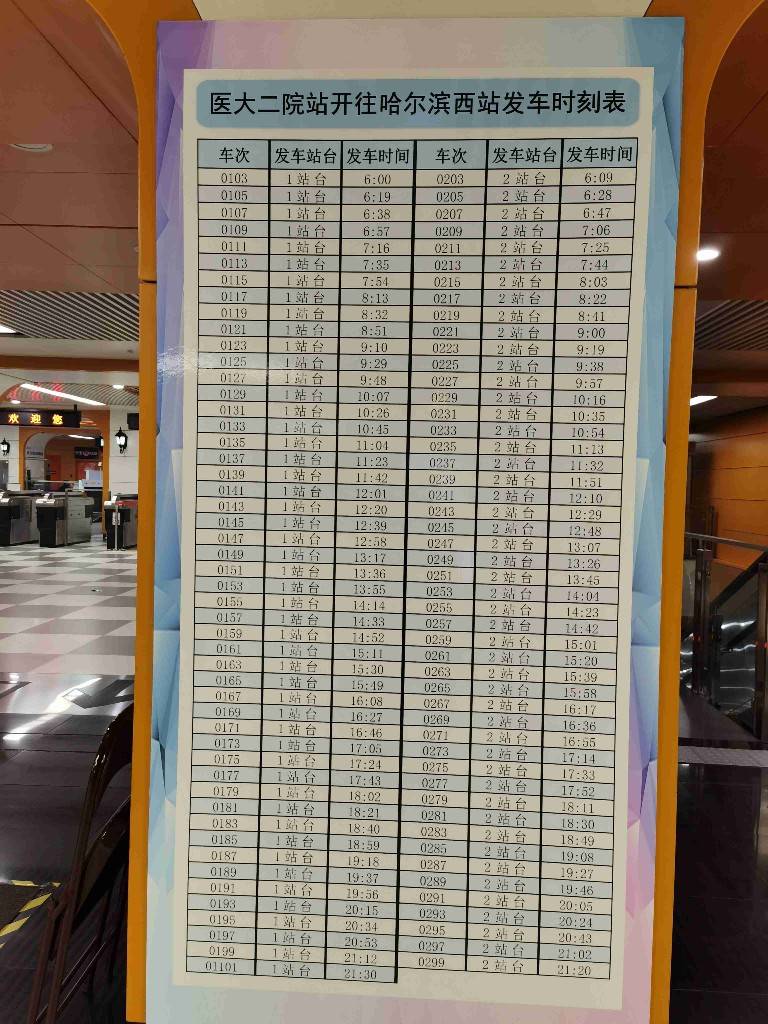 欢迎您
医大二院站开往哈尔滨西站发车时刻表
车次 发车站台 发车时间 车次 发车站台 发车时间
0103 1站台 6:00 0203 2站台 6:09
0105 1站台 6:19 0205 2站台 6:28
0107 1站台 6:38 0207 2站台 6:47
0109 1站台 6:57 0209 2站台 7:06
0111 1站台 7:16 0211 2站台 7:25
0113 1站台 7:35 0213 2站台 7:44
0115 1站台 7:54 0215 2站台 8:03
0117 1站台 8:13 0217 2站台 8:22
0119 1站台 8:32 0219 2站台 8:41
0121 1站台 8:51 0221 2站台 9:00
0123 1站台 9:10 0223 2站台 9:19
0125 1站台 9:29 0225 2站台 9:38
0127 1站台 9:48 0227 2站台 9:57
0129 1站台 10:07 0229 2站台 10:16
0131 1站台 10:26 0231 2站台 10:35
0133 1站台 10:45 0233 2站台 10:54
0135 1站台 11:04 0235 2站台 11:13
0137 1站台 11:23 0237 2站台 11:32
0139 1站台 11:42 0239 2站台 11:51
0141 1站台 12:01 0241 2站台 12:10
0143 1站台 12:20 0243 2站台 12:29
0145 1站台 12:39 0245 2站台 12:48
0147 1站台 12:58 0247 2站台 13:07
0149 1站台 13:17 0249 2站台 13:26
0151 1站台 13:36 0251 2站台 13:45
0153 1站台 13:55 0253 2站台 14:04
0155 1站台 14:14 0255 2站台 14:23
0157 1站台 14:33 0257 2站台 14:42
0159 1站台 14:52 0259 2站台 15:01
0161 1站台 15:11 0261 2站台 15:20
0163 1站台 15:30 0263 2站台 15:39
0165 1站台 15:49 0265 2站台 15:58
0167 1站台 16:08 0267 2站台 16:17
0169 1站台 16:27 0269 2站台 16:36
0171 1站台 16:46 0271 2站台 16:55
0173 1站台 17:05 0273 2站台 17:14
0175 1站台 17:24 0275 2站台 17:33
0177 1站台 17:43 0277 2站台 17:52
0179 1站台 18:02 0279 2站台 18:11
0181 1站台 18:21 0281 2站台 18:30
0183 1站台 18:40 0283 2站台 18:49
0185 1站台 18:59 0285 2站台 19:08
0187 1站台 19:18 0287 2站台 19:27
0189 1站台 19:37 0289 2站台 19:46
0191 1站台 19:56 0291 2站台 20:05
0193 1站台 20:15 0293 2站台 20:24
0195 1站台 20:34 0295 2站台 20:43
0197 1站台 20:53 0297 2站台 21:02
0199 1站台 21:12 0299 2站台 21:20
01101 1站台 21:30